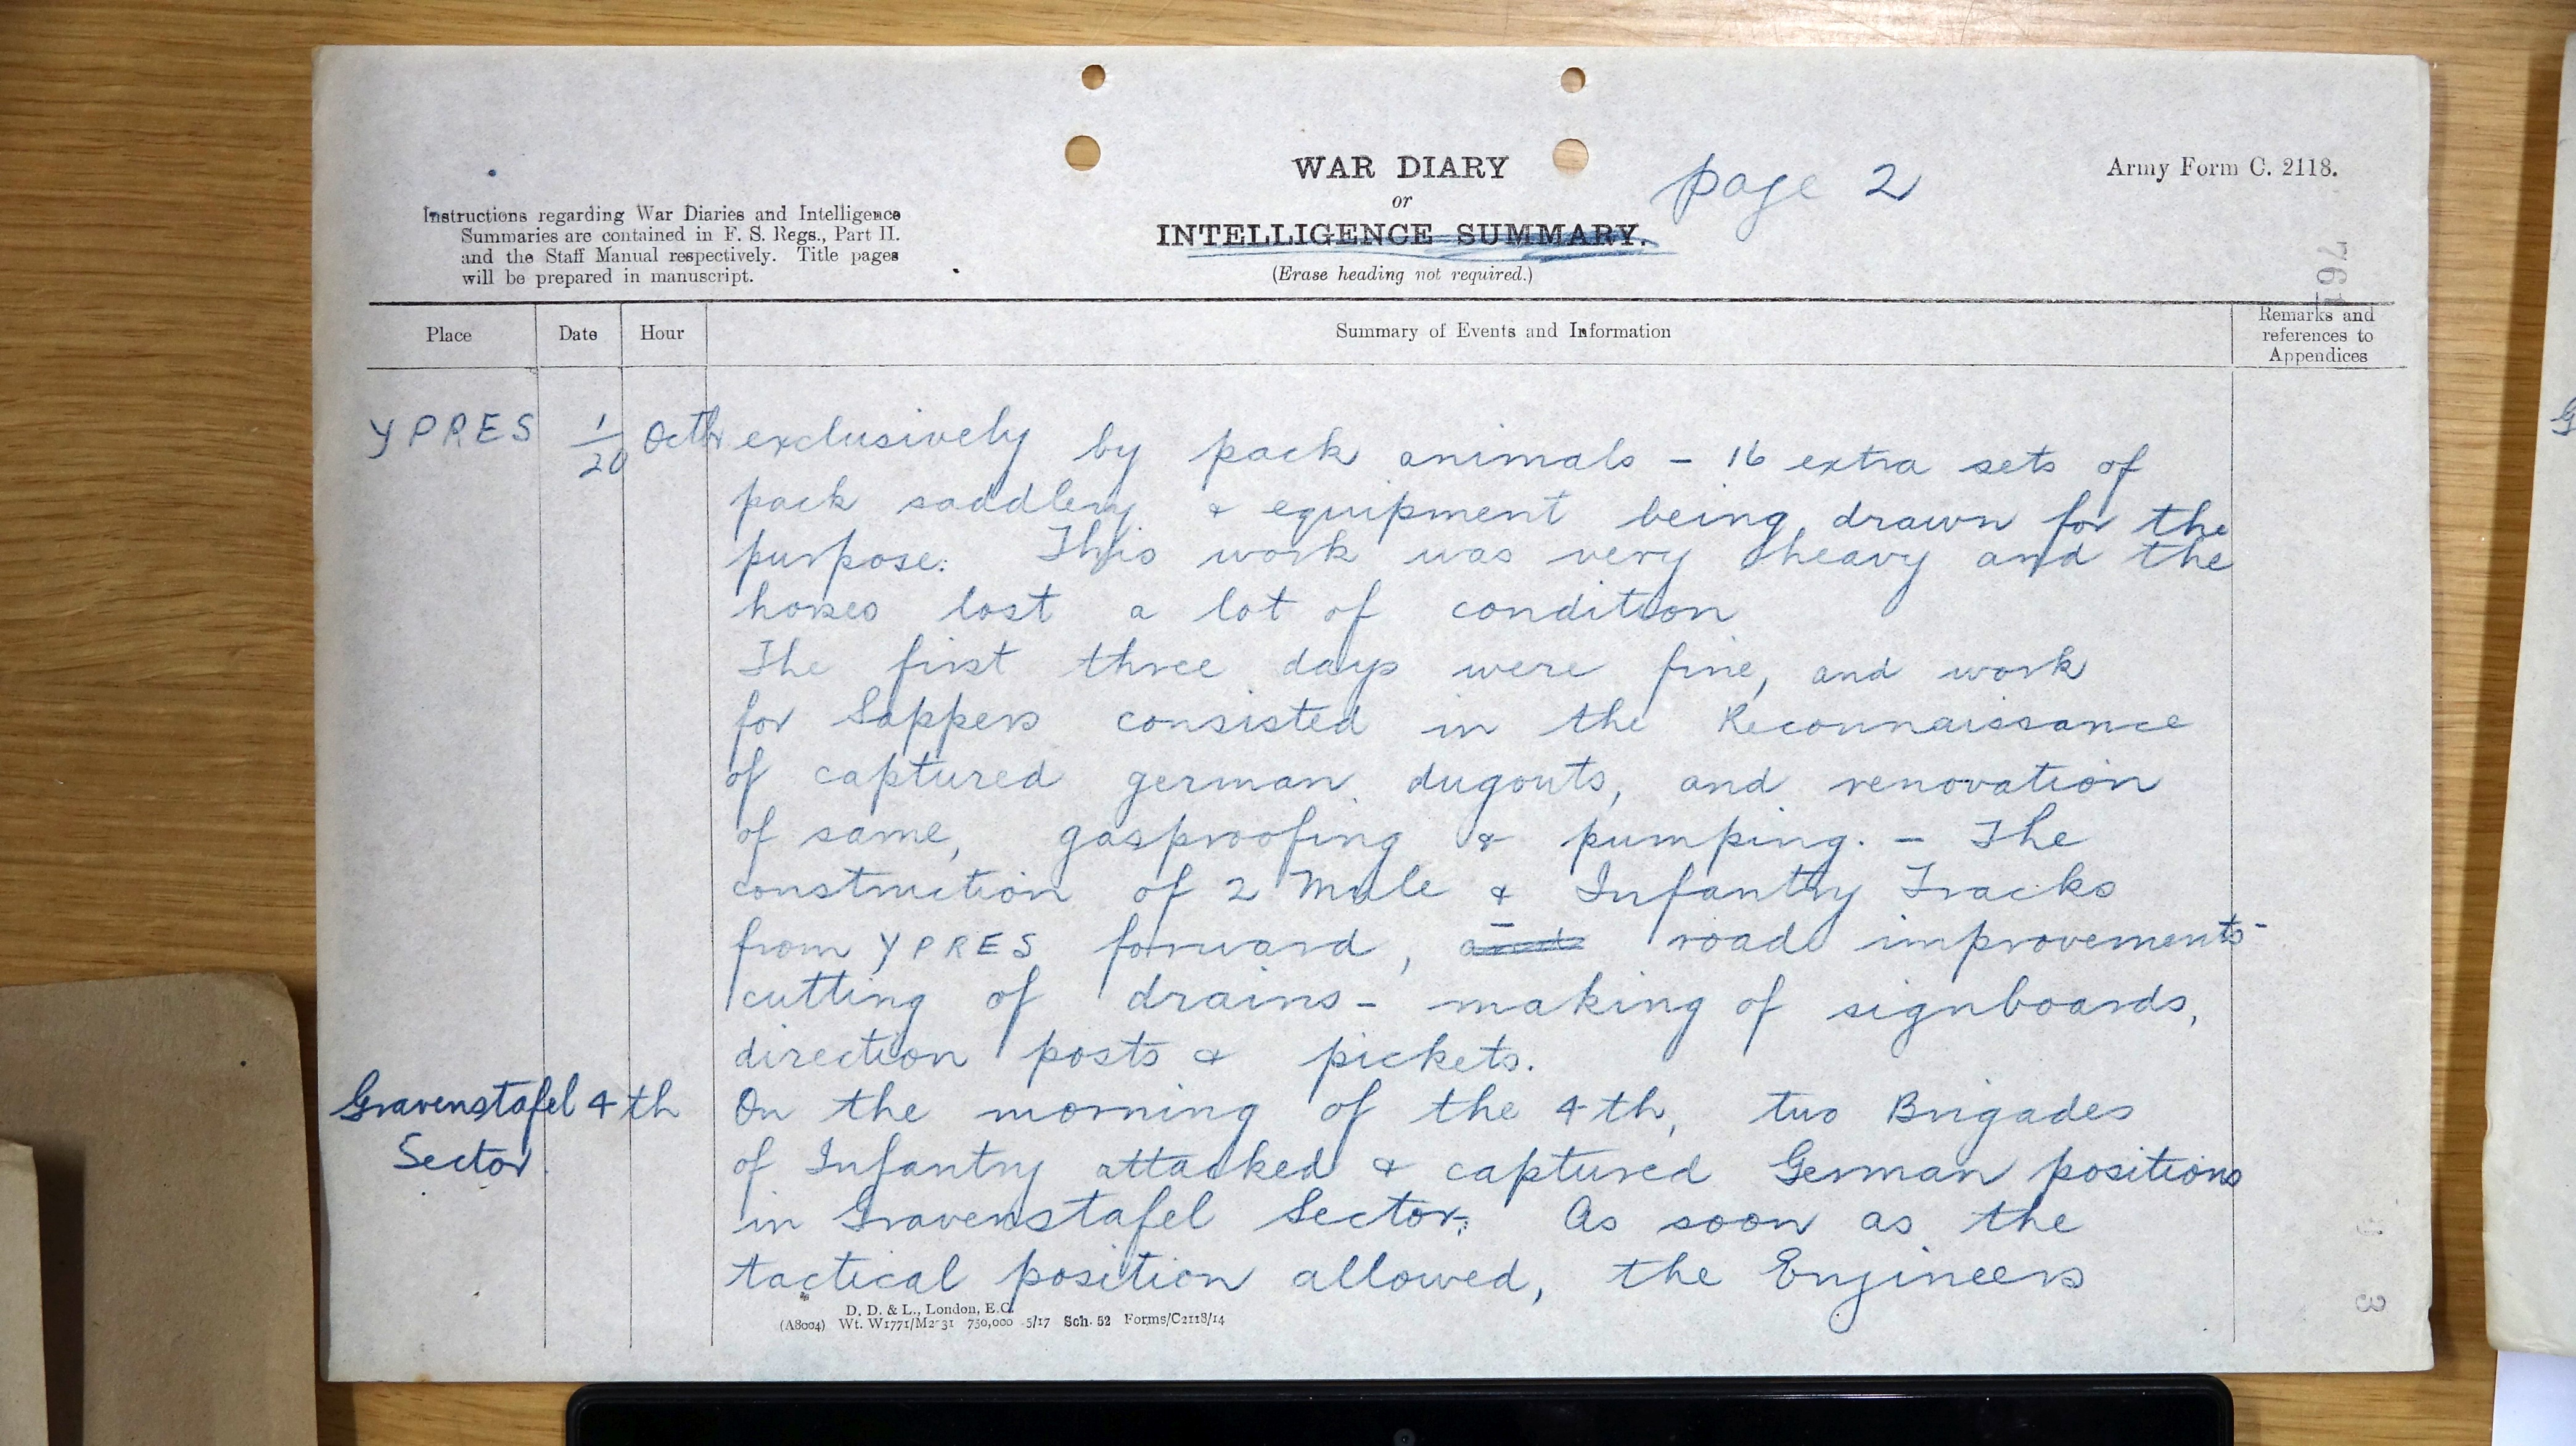 WAR DIARY
or
INTELLIGENCE SUMMARY.
(Erase heading not required.)
page 2
Army Form C. 2118.
Instructions regarding War Diaries and Intelligence
Summaries are contained in F. S. Regs., Part II.
and the Staff Manual respectively. Title pages
will be prepared in manuscript.
761
Place Date Hour Summary of Events and Information Remarks and
references to
Appendices
YPRES 1/20 Octbr exclusively by pack animals - 16 extra sets of
pack saddlery & equipment being drawn for the
purpose. This work was very heavy and the
horses lost a lot of condition
The first three days were fine, and work
for Sappers consisted in the Reconnaissance
of captured german dugouts, and renovation
of same, gasproofing & pumping. - The
construction of 2 Mule & Infantry Tracks
from YPRES forward, and road improvements -
cutting of drains - making of signboards,
direction posts & pickets.
Gravenstafel 4th On the morning of the 4th, two Brigades
Sector. of Infantry attacked & captured German positions
in Gravenstafel Sector. As soon as the
tactical position allowed, the Engineers
D. D. & L., London, E.C.
(A8004) Wt. W1771/M2 31 750,000 5/17 Sch. 52 Forms/C2118/14